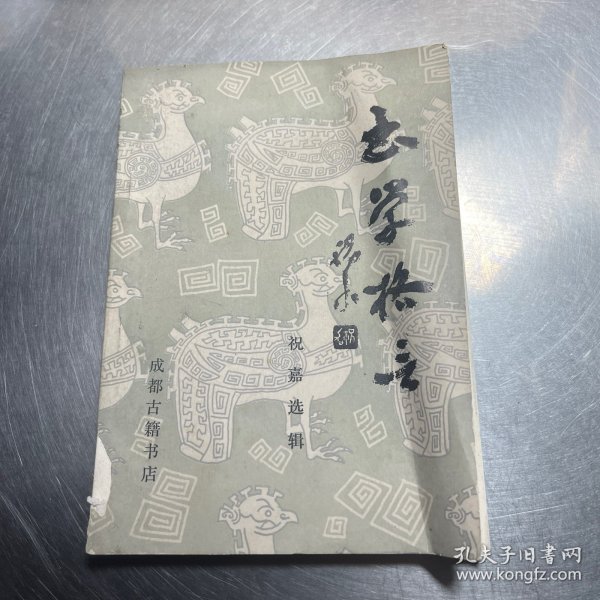 书学格言
祝嘉选辑
成都古籍书店
孔夫子旧书网
www.kongfz.com